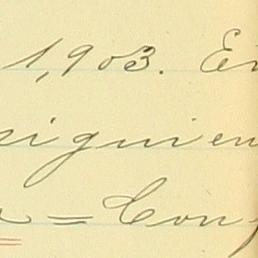 1,903. En
siguien
a = Con